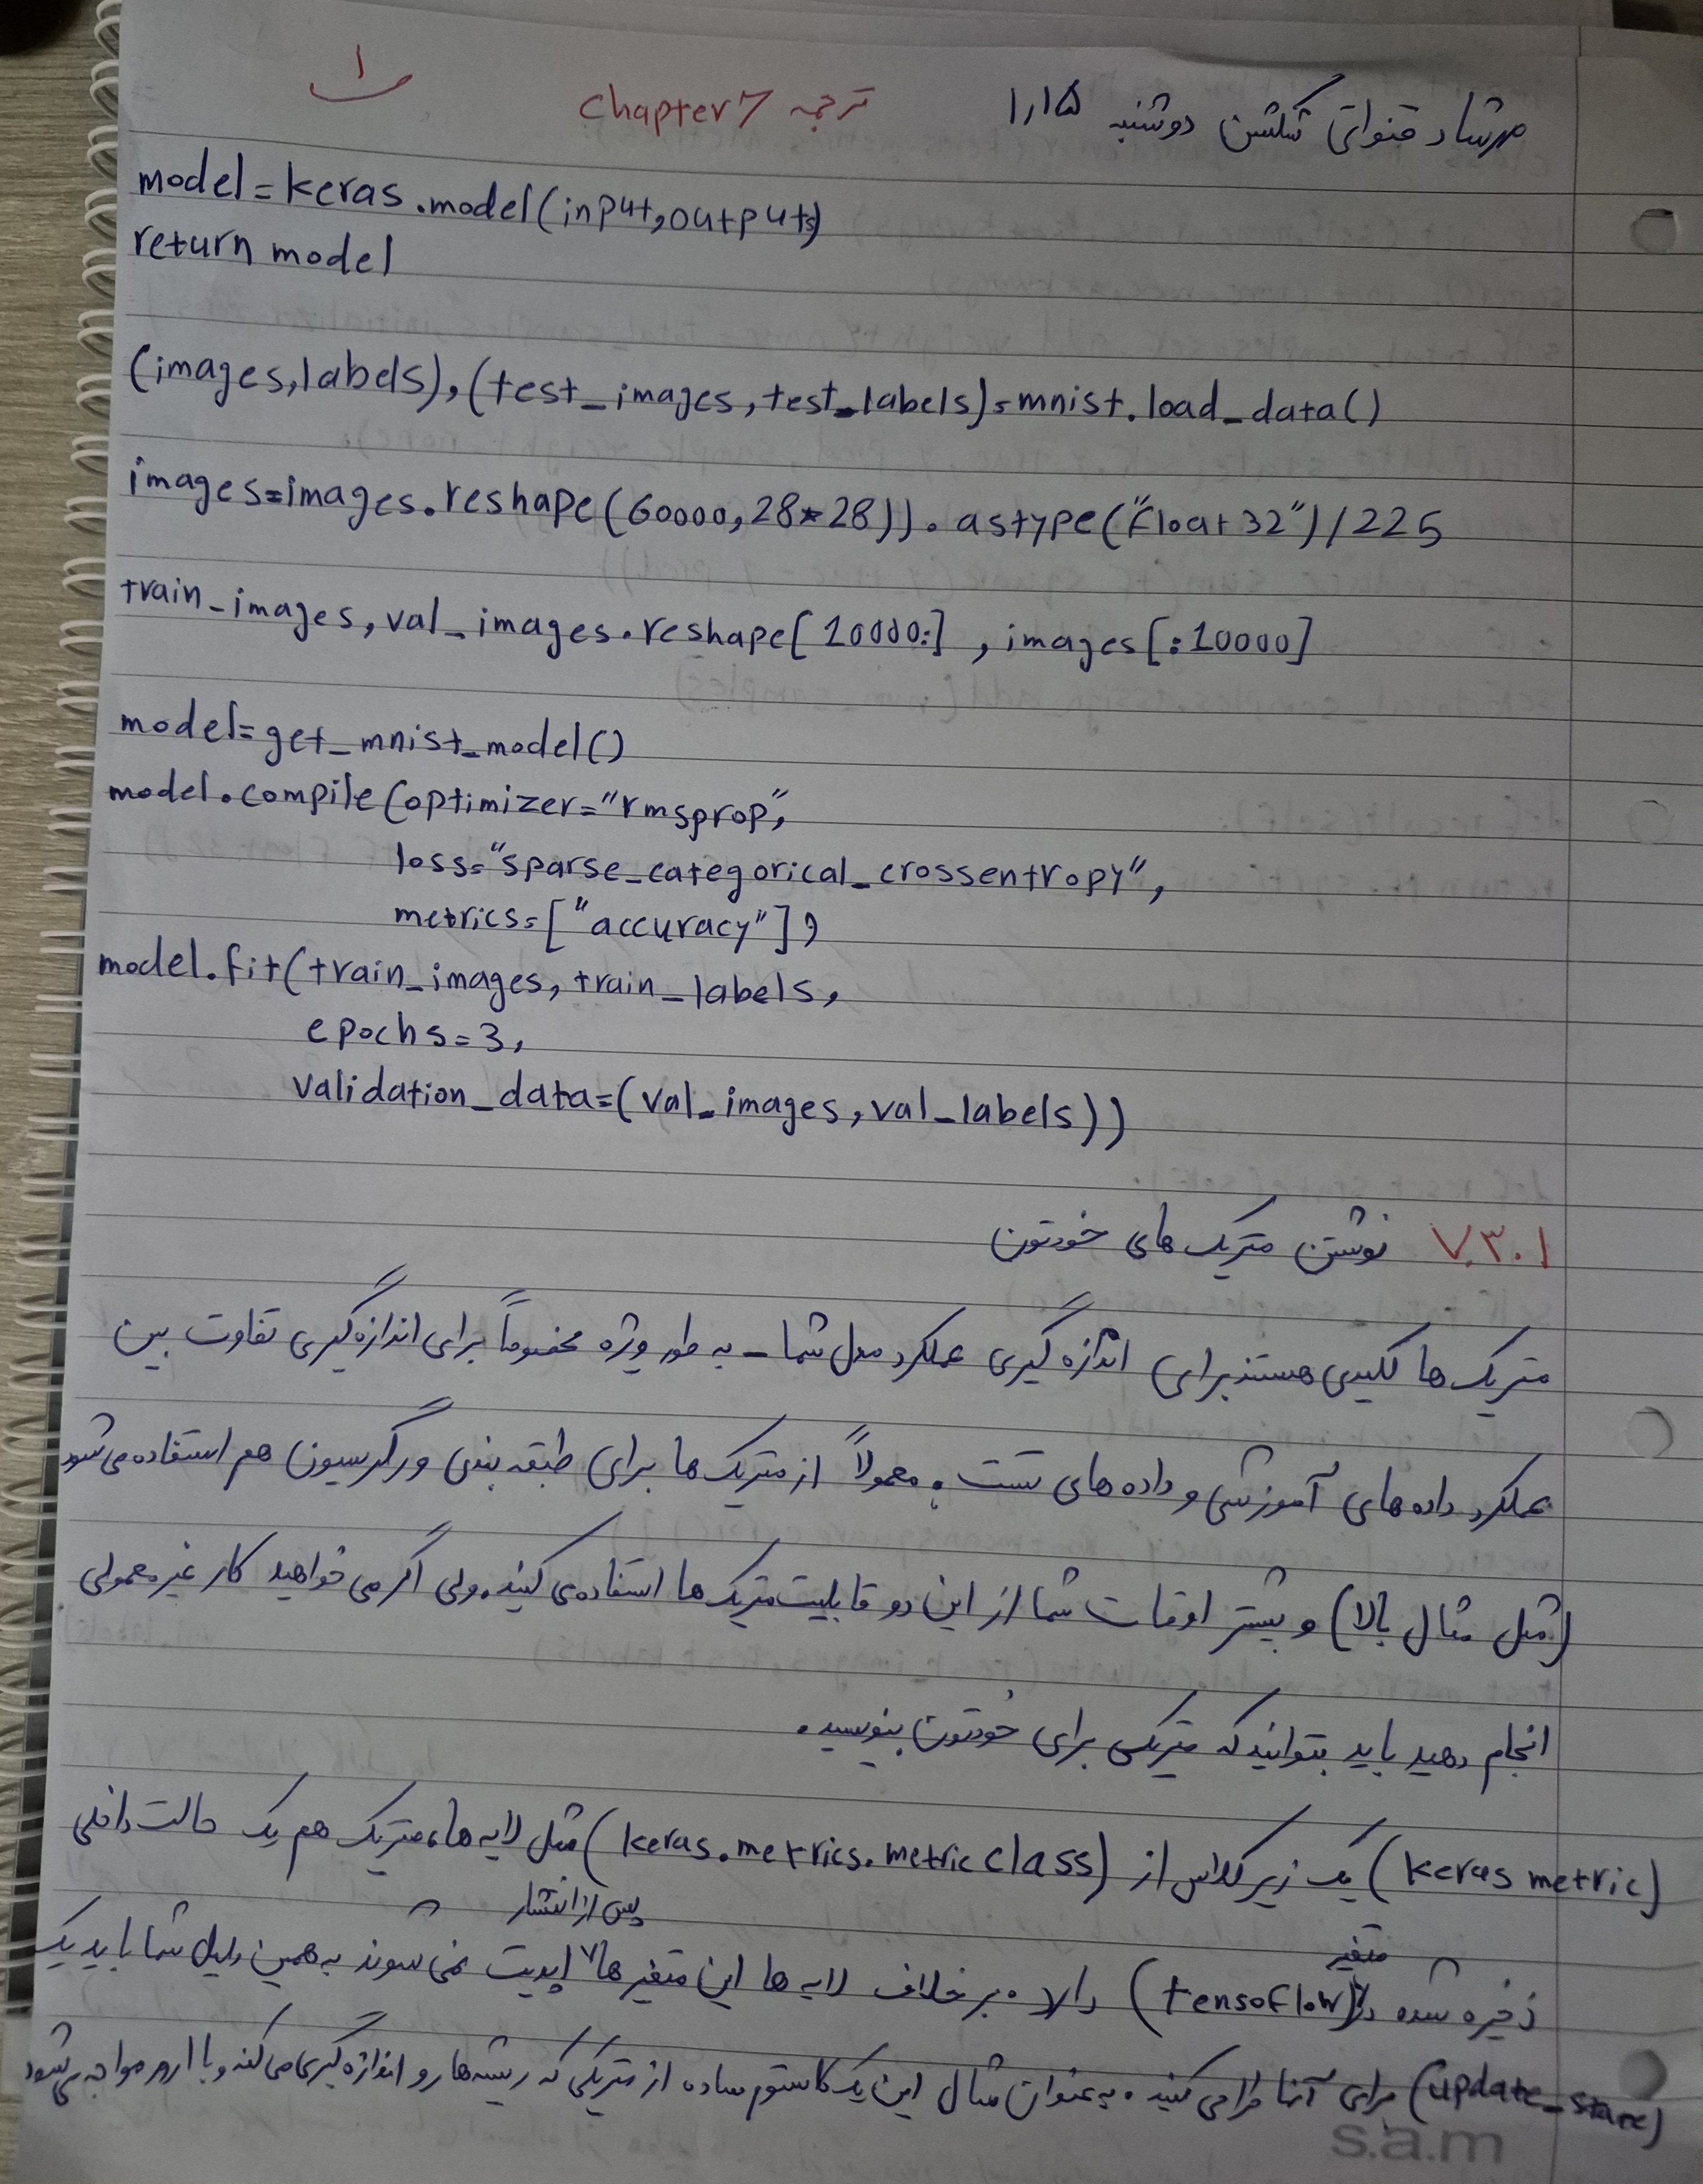 ۱
مهرشاد قنواتی گلشن دوشنبه ۱,۱۵
ترجمه Chapter 7
model=keras.model(input,outputs)
return model
(images,labels),(test_images,test_labels)=mnist.load_data()
images=images.reshape(60000,28*28)).astype("float32")/225
train_images,val_images.reshape[10000:],images[:10000]
model=get_mnist_model()
model.compile(optimizer="rmsprop",
loss="sparse_categorical_crossentropy",
metrics=["accuracy"])
model.fit(train_images,train_labels,
epochs=3,
validation_data=(val_images,val_labels))
۷.۳.۱ نوشتن متریک های خودتون
متریک ها کلیدی هستند برای اندازه گیری عملکرد مدل شما - به طور ویژه مخصوصاً برای اندازه گیری تفاوت بین
عملکرد داده های آموزشی و داده های تست. معمولاً از متریک ها برای طبقه بندی و رگرسیون هم استفاده می شود
(مثل مثال بالا) و بیشتر اوقات شما از این دو قابلیت متریک ها استفاده می کنید. ولی اگر می خواهید کار غیر معمولی
انجام دهید باید بتوانید که متریکی برای خودتون بنویسید.
(keras metric) یک زیر کلاس از (keras.metrics.metric class) مثل لایه ها، متریک هم یک حالت داخلی
ذخیره شده در متغیر (tensoflow) دارد. برخلاف لایه ها این متغیر ها پس از انتشار اپدیت نمی شوند به همین دلیل شما باید یک
(update_state) برای آنها طراحی کنید. به عنوان مثال این یک کاستوم ساده از متریکی که ریشه ها رو اندازه گیری می کند و با ارور مواجه می شود
s.a.m